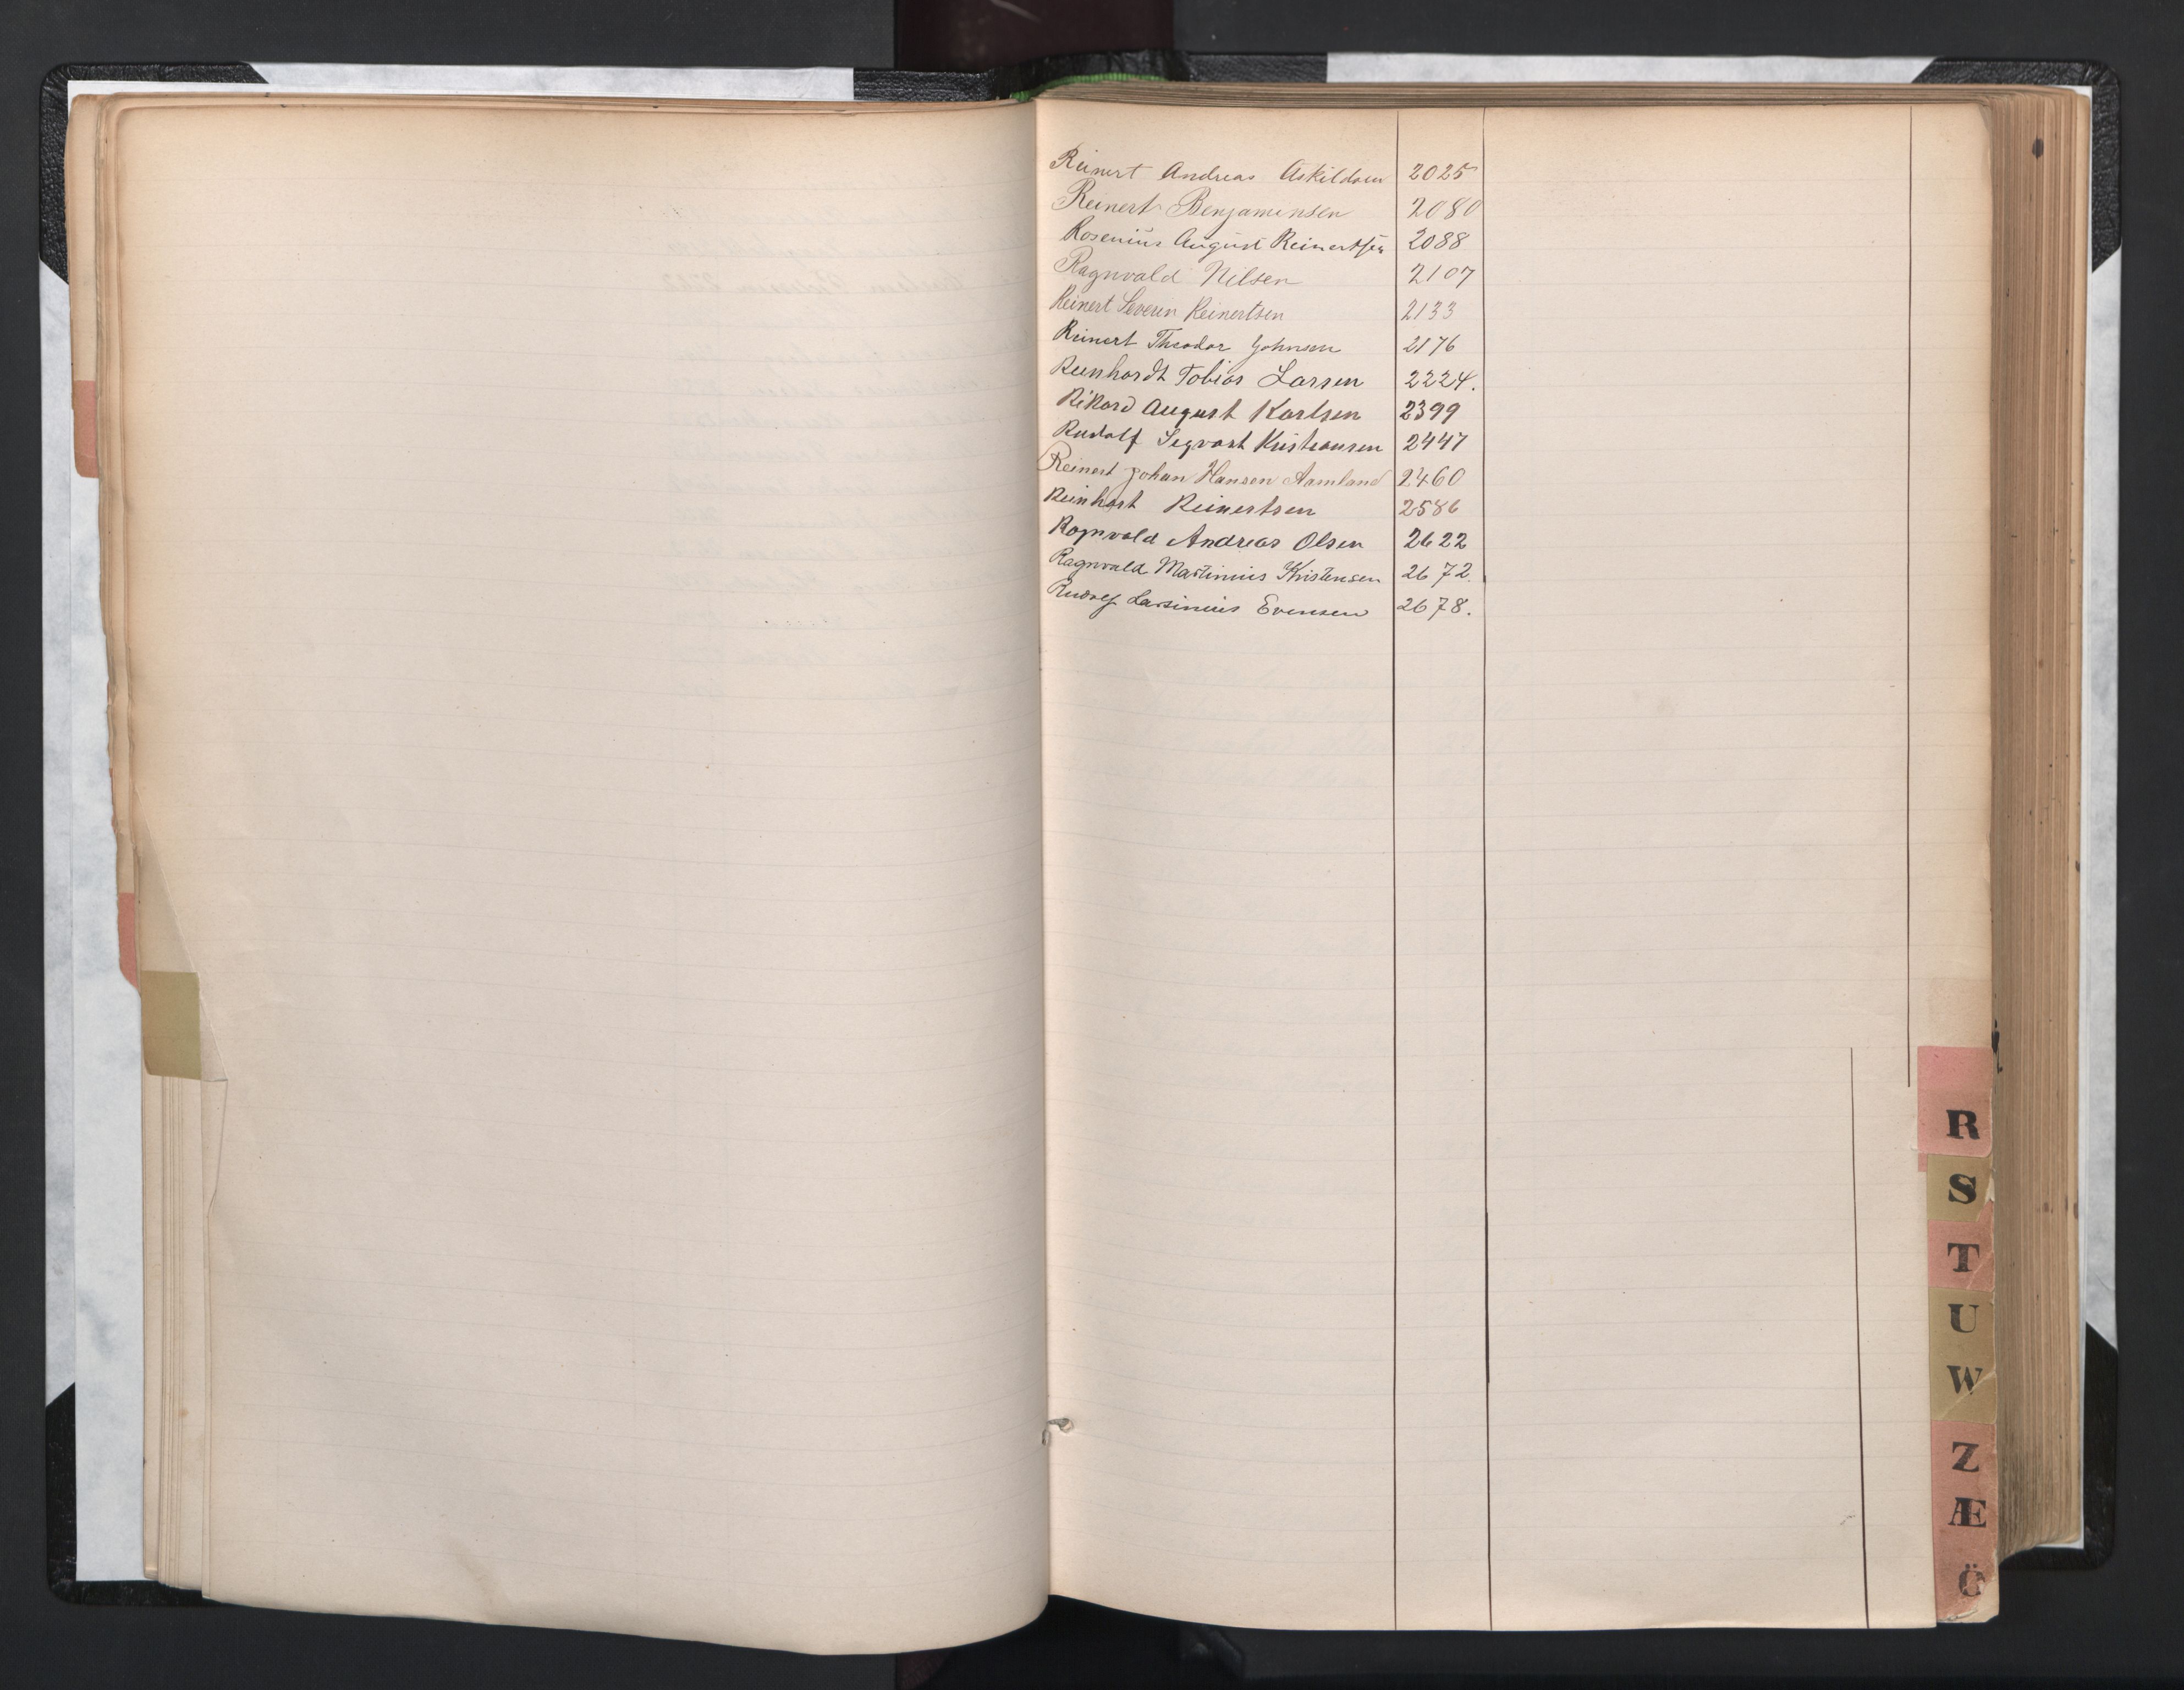 Reinert Andreas Askildsen 2025
Reinert Benjaminsen 2080
Rosenius August Reinertsen 2088
Ragnvald Nilsen 2107
Reinert Severin Reinertsen 2133
Reinert Theodor Johnsen 2176
Reinhardt Tobias Larsen 2224.
Rikard August Karlsen 2399
Rudolf Sigvart Kristiansen 2447
Reinert Johan Hansen Aamland 2460
Reinhart Reinertsen 2586
Ragnvald Andreas Olsen 2622
Ragnvald Martinius Kristensen 2672.
Rudolf Larsinius Evensen 2678.
R
S
T
U
W
Z
Æ
Ö